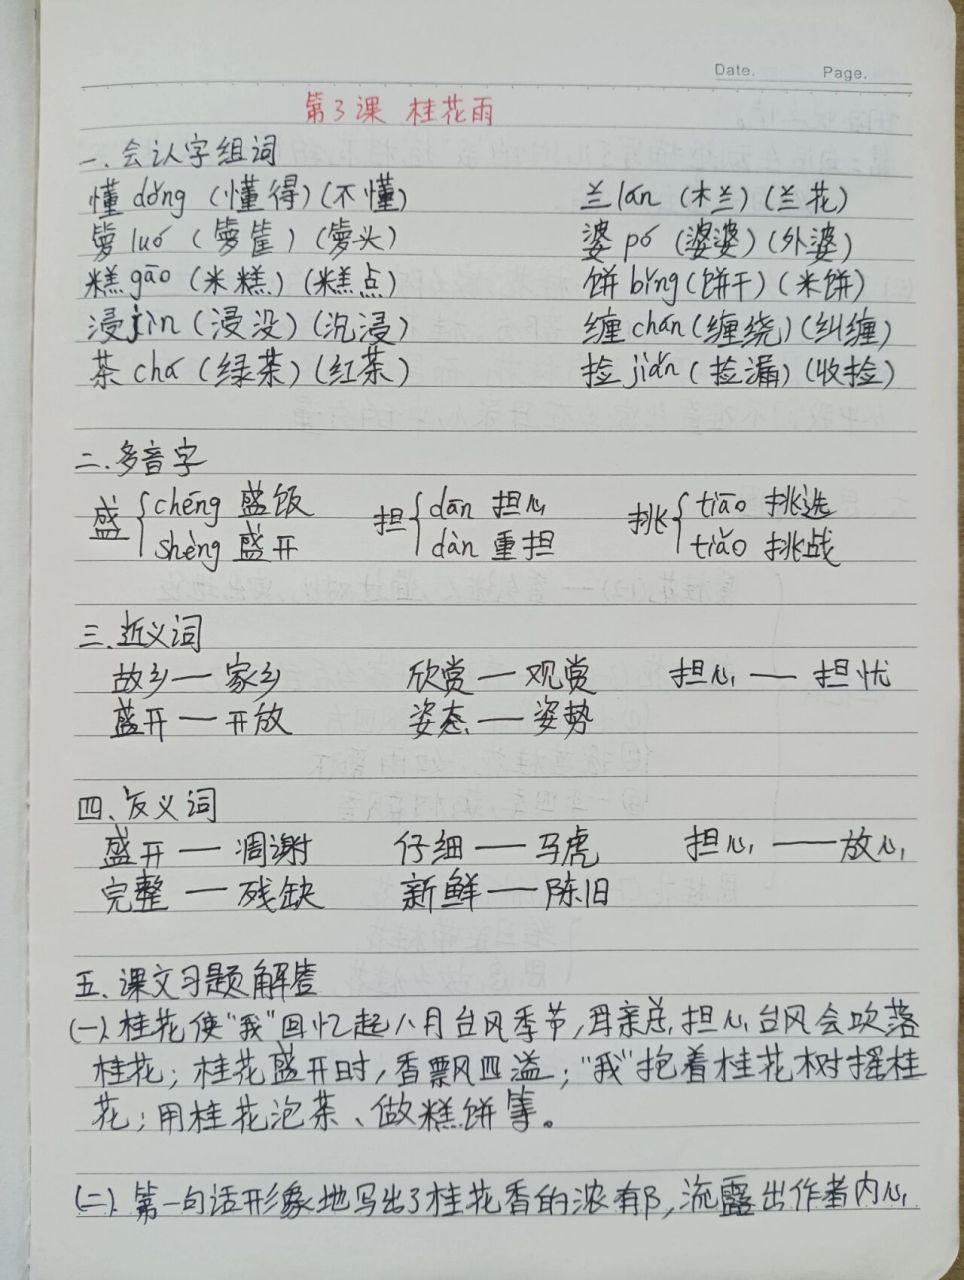 Date. Page.
第3课 桂花雨
一、会认字组词
懂 dǒng (懂得)(不懂) 兰 lán (木兰)(兰花)
箩 luó (箩筐)(箩头) 婆 pó (婆婆)(外婆)
糕 gāo (米糕)(糕点) 饼 bǐng (饼干)(米饼)
浸 jìn (浸没)(沉浸) 缠 chán (缠绕)(纠缠)
茶 chá (绿茶)(红茶) 捡 jiǎn (捡漏)(收捡)
二、多音字
盛 { chéng 盛饭 担 { dān 担心 挑 { tiāo 挑选
shèng 盛开 dàn 重担 tiǎo 挑战
三、近义词
故乡 — 家乡 欣赏 — 观赏 担心 — 担忧
盛开 — 开放 姿态 — 姿势
四、反义词
盛开 — 凋谢 仔细 — 马虎 担心 — 放心
完整 — 残缺 新鲜 — 陈旧
五、课文习题解答
(一). 桂花使“我”回忆起八月台风季节,母亲总担心台风会吹落
桂花;桂花盛开时,香飘四溢;“我”抱着桂花树摇桂
花;用桂花泡茶、做糕饼等。
(二). 第一句话形象地写出了桂花香的浓郁,流露出作者内心